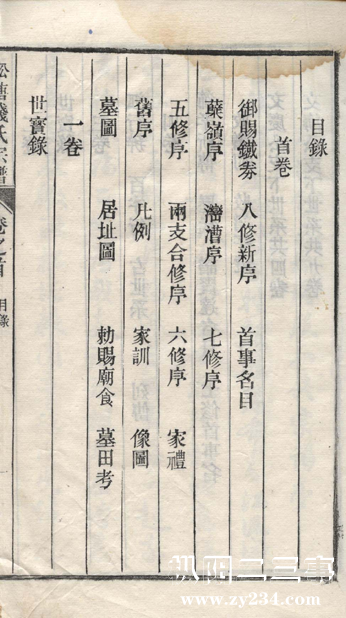 目錄
首卷
御賜鐵劵 八修新序 首事名目
蕀嶺序 瀂漕序 七修序
五修序 兩支合修序 六修序 家禮
舊序 凡例 家訓 像圖
墓圖 居址圖 勅賜廟食 墓田考
一卷
世寶錄
錢氏宗譜 卷之首 目錄
www.zy234.com